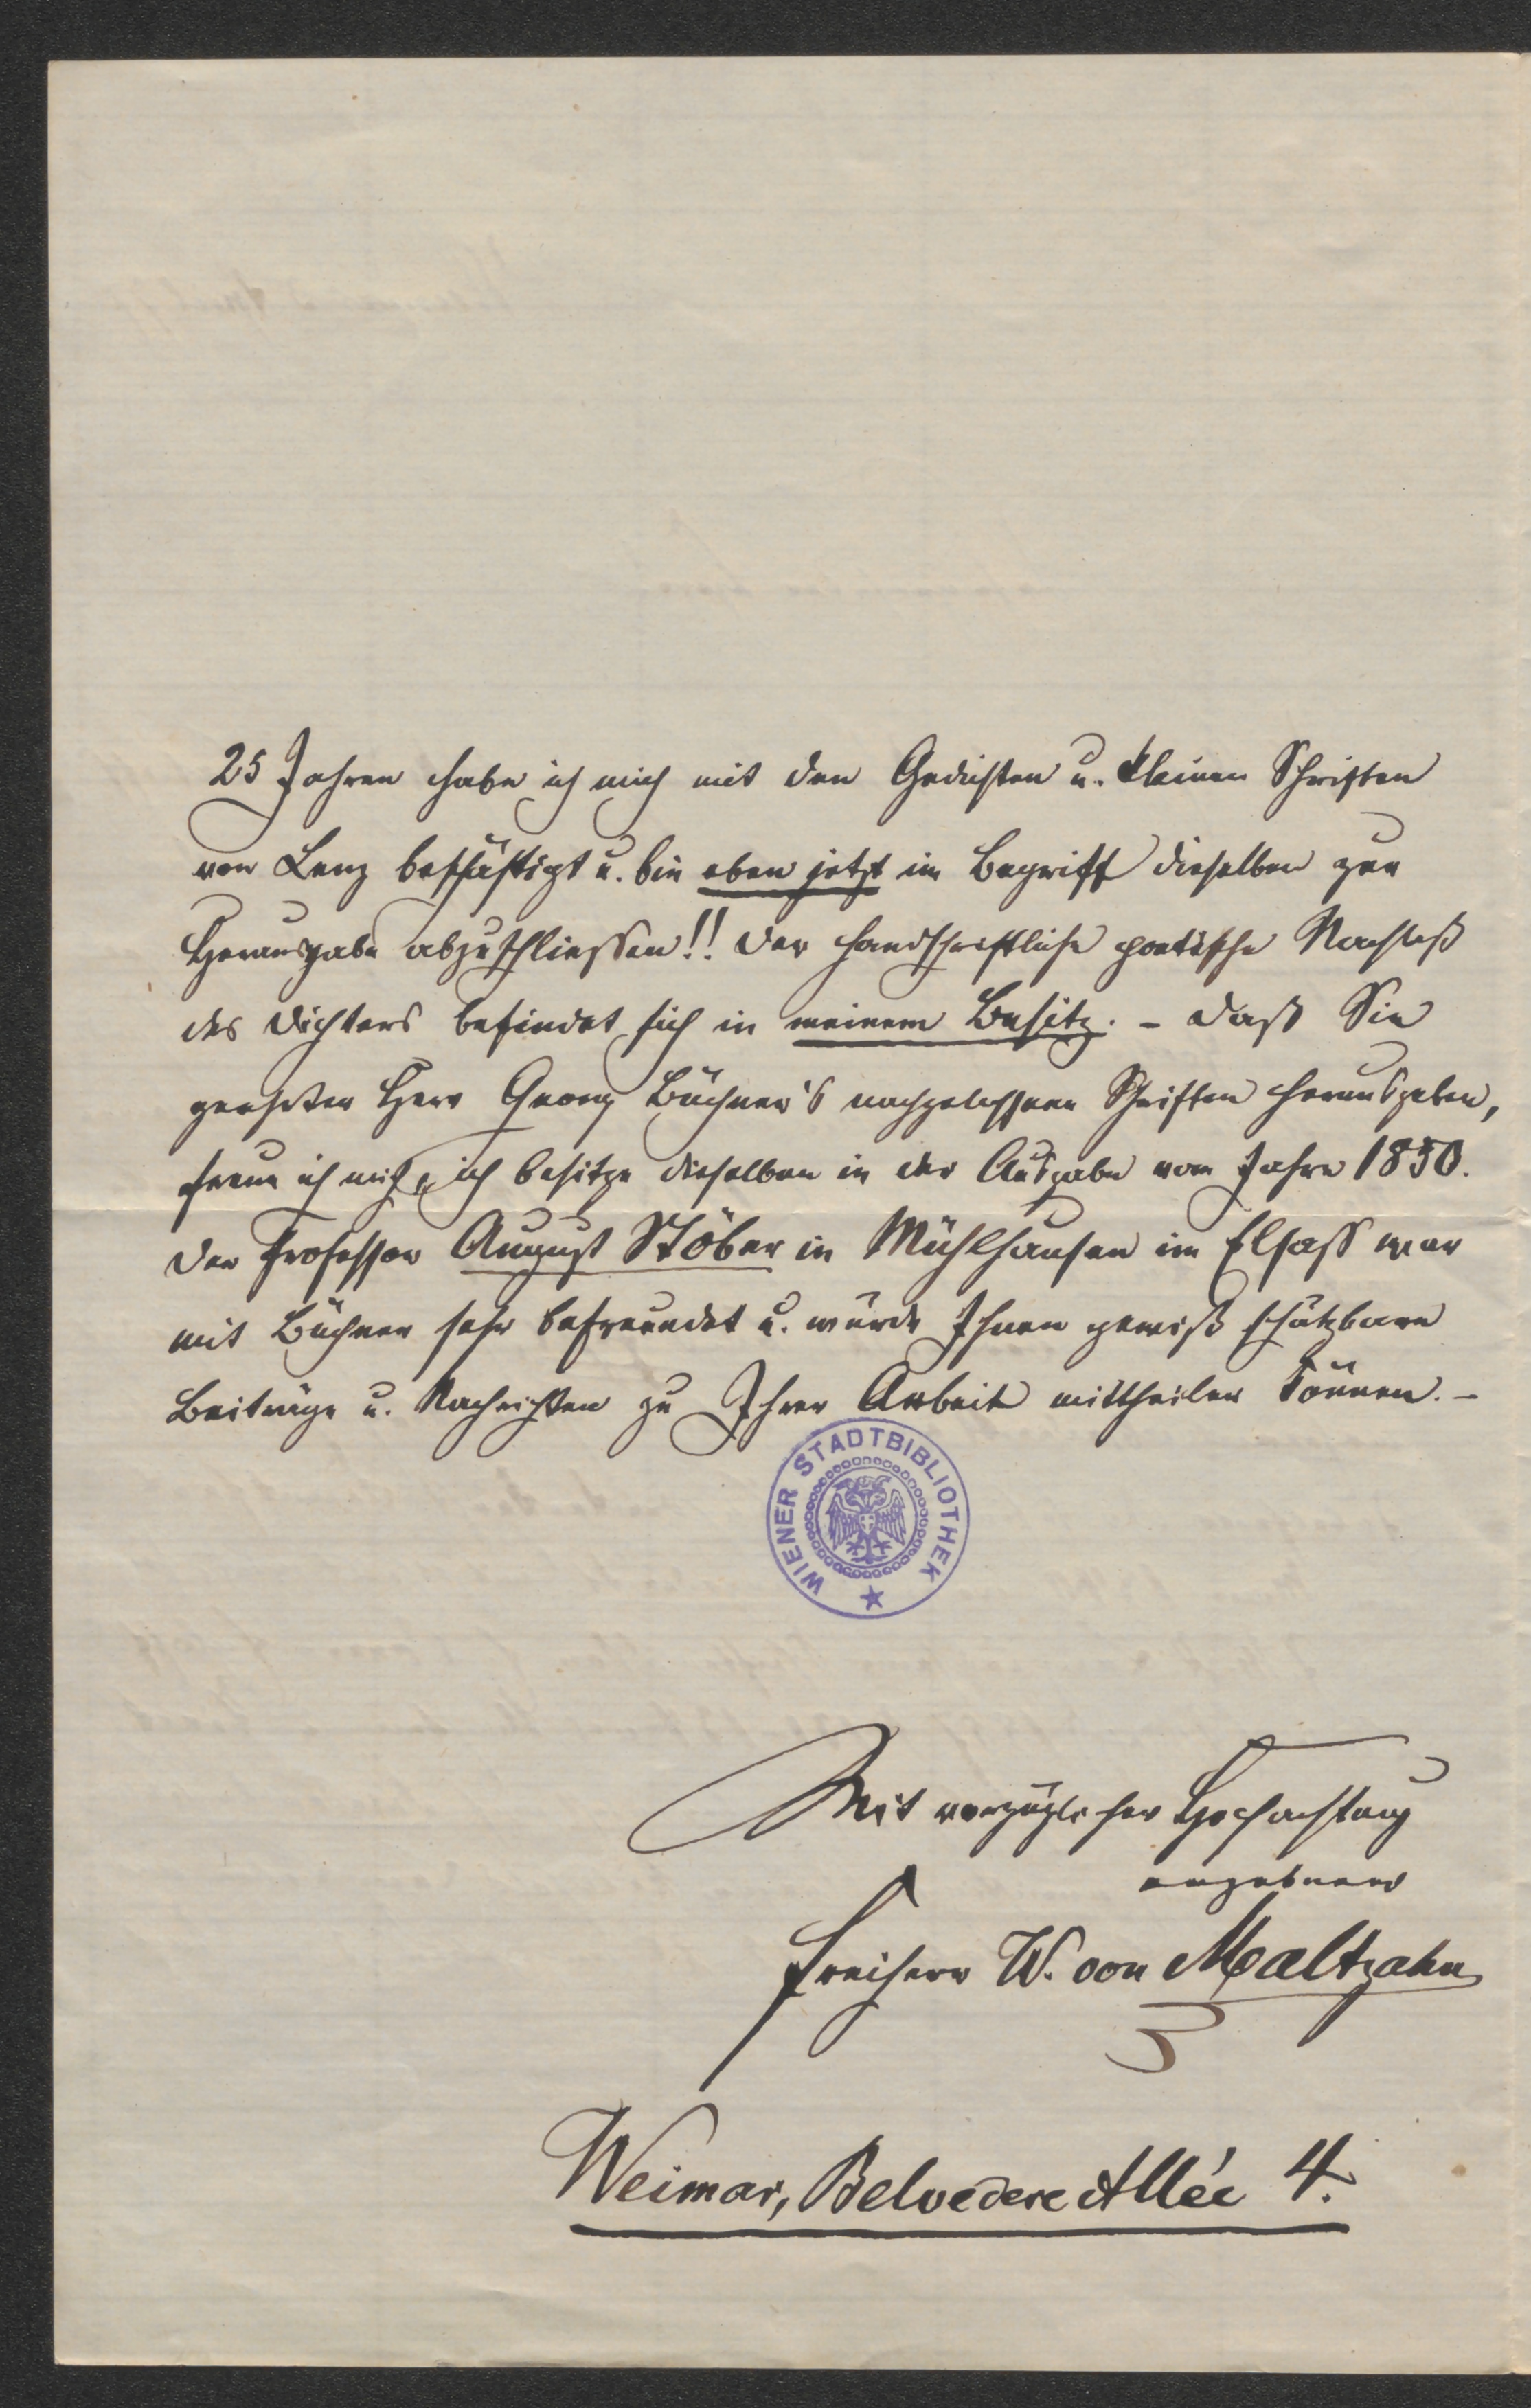 25 Jahren habe ich mich mit den Gedichten u. kleinen Schriften
von Lenz beschäftigt u. bin eben jetzt im Begriff dieselben zur
Herausgabe abzuschliessen!! Der handschriftliche poetische Nachlaß
des Dichters befindet sich in meinem Besitz. – Daß Sie
geehrter Herr Georg Büchner's nachgelassene Schriften herausgeben,
freue ich mich, ich besitze dieselben in der Ausgabe vom Jahre 1850.
Der Professor August Stöber in Mühlhausen im Elsass war
mit Büchner sehr befreundet u. würde Ihnen gewiß schätzbare
Beiträge u. Nachrichten zu Ihrer Arbeit mittheilen können. –
WIENER STADTBIBLIOTHEK
Mit vorzüglicher Hochachtung
ergebenst
Freiherr W. von Maltzahn
Weimar, Belvedere Allée 4.